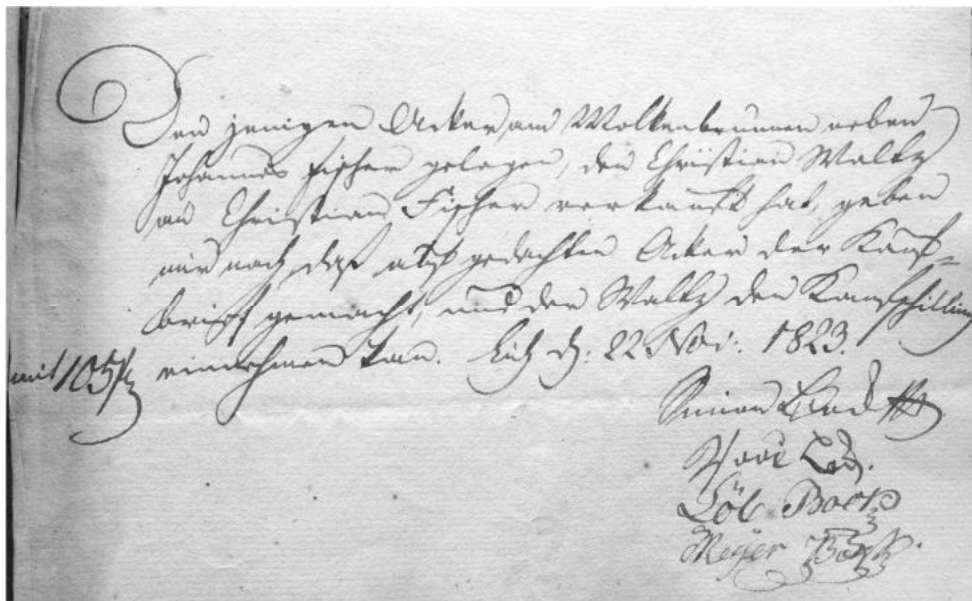 Den jenigen Acker am Wolkenbrunnen neben
Johannes Fischer gelegen, den Christian Waltz
an Christian Fischer verkauft hat, geben
wir nach, daß gedachten Acker der Kauf=
brief gemacht, und der Waltz den Kaufschilling
mit 105 f einnehmen kan. d: 22 Nov: 1823.
Simon
Löb Bock
Meyer Bock.